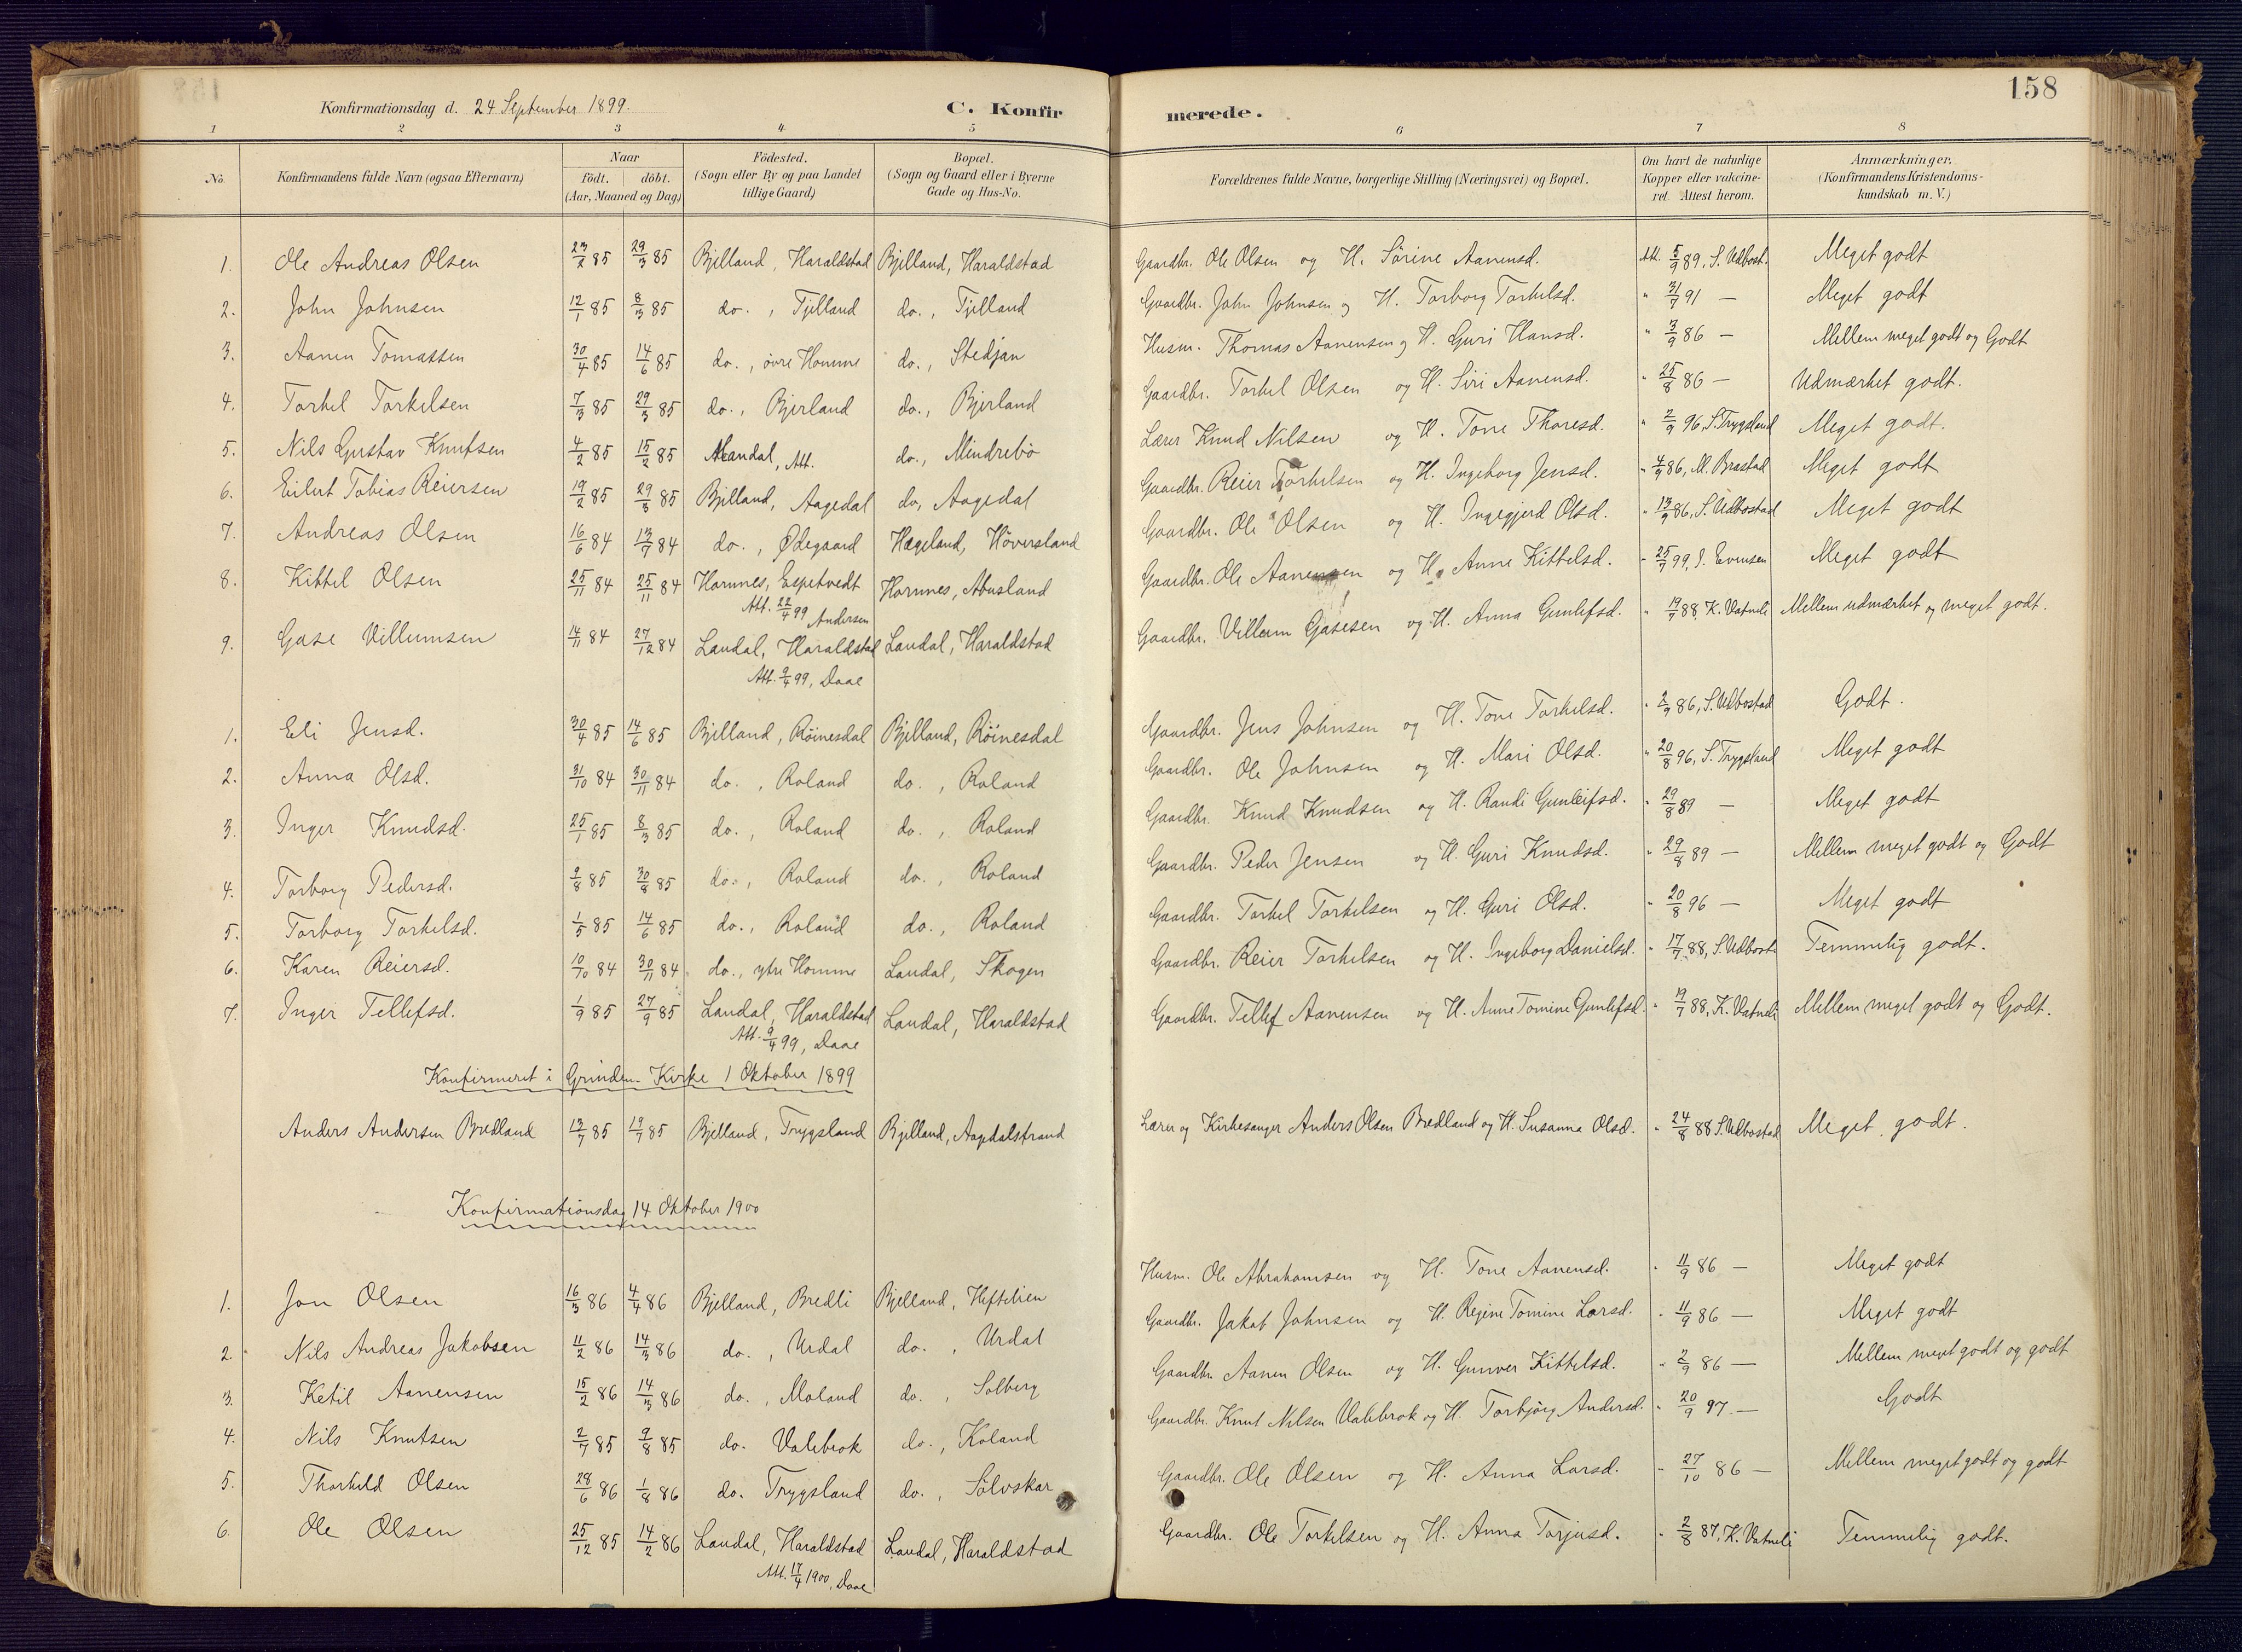 158
Konfirmationsdag d. 24 September 1899. C. Konfirmerede.
1 2 3 4 5 6 7 8
No. Konfirmandens fulde Navn (ogsaa Efternavn) Naar Födt. döbt. (Aar, Maaned og Dag) Födested. (Sogn eller By og paa Landet tillige Gaard) Bopæl. (Sogn og Gaard eller i Byerne Gade og Hus-No. Forældrenes fulde Navne, borgerlige Stilling (Næringsvei) og Bopæl. Om havt de naturlige Kopper eller vakcineret Attest herom. Anmærkninger. (Konfirmandens Kristendomskundskab m. V.)
1. Ole Andreas Olsen 23/2 85 29/3 85 Bjelland, Haraldstad Bjelland, Haraldstad Gaardbr. Ole Olsen og H. Sörine Aanensd. Att. 5/9 89, S. Udbost. Meget godt
2. John Johnsen 12/1 85 8/3 85 do., Tjelland do., Tjelland Gaardbr. John Johnsen og H. Torborg Torkelsd. " 31/7 91 — Meget godt
3. Aanen Tomassen 30/4 85 14/6 85 do., övre Homme do., Stedjan Husm. Thomas Aanensen og H. Guri Hansd. " 3/9 86 — Mellem meget godt og Godt
4. Torkel Torkelsen 7/3 85 29/3 85 do., Bjerland do., Bjerland Gaardbr. Torkel Olsen og H. Siri Aanensd. " 25/8 86 — Udmærket godt.
5. Nils Gustav Knutsen 4/2 85 15/2 85 Mandal, Att. do., Mindrebö Lærer Knud Nilsen og H. Tone Thoresd. " 2/9 96, S. Trygsland Meget godt.
6. Eilert Tobias Reiersen 19/2 85 29/3 85 Bjelland, Aagedal do, Aagedal Gaardbr. Reier Torkelsen og H. Ingeborg Jensd. " 4/9 86, M. Brastad Meget godt
7. Andreas Olsen 16/6 84 13/7 84 do., Ødegaard Hægeland, Höversland Gaardbr. Ole Olsen og H. Ingegjerd Olsd. " 13/9 86, S. Udbostad Meget godt
8. Kittel Olsen 25/11 84 25/11 84 Hornnes, Espetvedt Hornnes, Abusland Gaardbr. Ole Aanensen og H. Anne Kittelsd. " 25/7 99, J. Evensen Meget godt
Att. 22/4 99 Andersen
9. Gase Villumsen 14/11 84 27/12 84 Laudal, Haraldstad Laudal, Haraldstad Gaardbr. Villum Gasesen og H. Anna Gunlefsd. " 19/7 88, K. Vatneli Mellem udmærket og meget godt.
Att. 9/4 99, Daae
1. Eli Jensd. 30/4 85 14/6 85 Bjelland, Röinesdal Bjelland, Röinesdal Gaardbr. Jens Johnsen og H. Tone Torkelsd. " 2/9 86, S. Udbostad Godt.
2. Anna Olsd. 31/10 84 30/11 84 do., Roland do., Roland Gaardbr. Ole Johnsen og H. Mari Olsd. " 20/8 96, S. Trygsland Meget godt
3. Inger Knudsd. 25/1 85 8/3 85 do., Roland do., Roland Gaardbr. Knud Knudsen og H. Randi Gunleifsd. " 29/8 89 — Meget godt
4. Torborg Pedersd. 9/8 85 30/8 85 do., Roland do., Roland Gaardbr. Peder Jensen og H. Guri Knudsd. " 29/8 89 — Mellem meget godt og Godt
5. Torborg Torkelsd. 1/5 85 14/6 85 do., Roland do., Roland Gaardbr. Torkel Torkelsen og H. Guri Olsd. " 20/8 96 — Meget godt
6. Karen Reiersd. 10/10 84 30/11 84 do., ytre Homme Laudal, Skogen Gaardbr. Reier Torkelsen og H. Ingeborg Danielsd. " 17/7 88, S. Udbost. Temmelig godt.
7. Inger Tellefsd. 1/9 85 27/9 85 Laudal, Haraldstad Laudal, Haraldstad Gaardbr. Tellef Aanensen og H. Anne Tomine Gunlefsd. " 19/7 88, K. Vatneli Mellem meget godt og Godt.
Att. 9/4 99, Daae
Konfirmeret i Grindem Kirke 1 Oktober 1899
Anders Andersen Bredland 13/7 85 19/7 85 Bjelland, Trygsland Bjelland, Aagdalstrand Lærer og Kirkesanger Anders Olsen Bredland og H. Susanna Olsd. " 24/8 88 S. Udbostad Meget godt.
Konfirmationsdag 14 Oktober 1900
1. Jon Olsen 16/3 86 4/4 86 Bjelland, Bredli Bjelland, Heftelien Husm. Ole Abrahamsen og H. Tone Aanensd. " 11/9 86 — Meget godt
2. Nils Andreas Jakobsen 11/2 86 14/3 86 do., Urdal do., Urdal Gaardbr. Jakob Johnsen og H. Regine Tomine Larsd. " 11/9 86 — Meget godt
3. Ketil Aanensen 15/2 86 14/3 86 do., Moland do., Solberg Gaardbr. Aanen Olsen og H. Gunver Kittelsd. " 2/9 86 — Mellem meget godt og godt
4. Nils Knutsen 2/7 85 9/8 85 do. Valebrok do., Koland Gaardbr. Knut Nilsen Valebrok og H. Torbjörg Andersd. " 20/9 97. — Godt
5. Thorkild Olsen 28/6 86 1/8 86 do. Trygsland do., Sölvskar Gaardbr. Ole Olsen og H. Anna Larsd. " 27/10 86 — Mellem meget godt og godt
6. Ole Olsen 25/12 85 14/2 86 Laudal, Haraldstad Laudal, Haraldstad Gaardbr. Ole Torkelsen og H. Anna Torjusd. " 2/8 87, K. Vatneli Temmelig godt.
Att. 17/4 1900, Daae